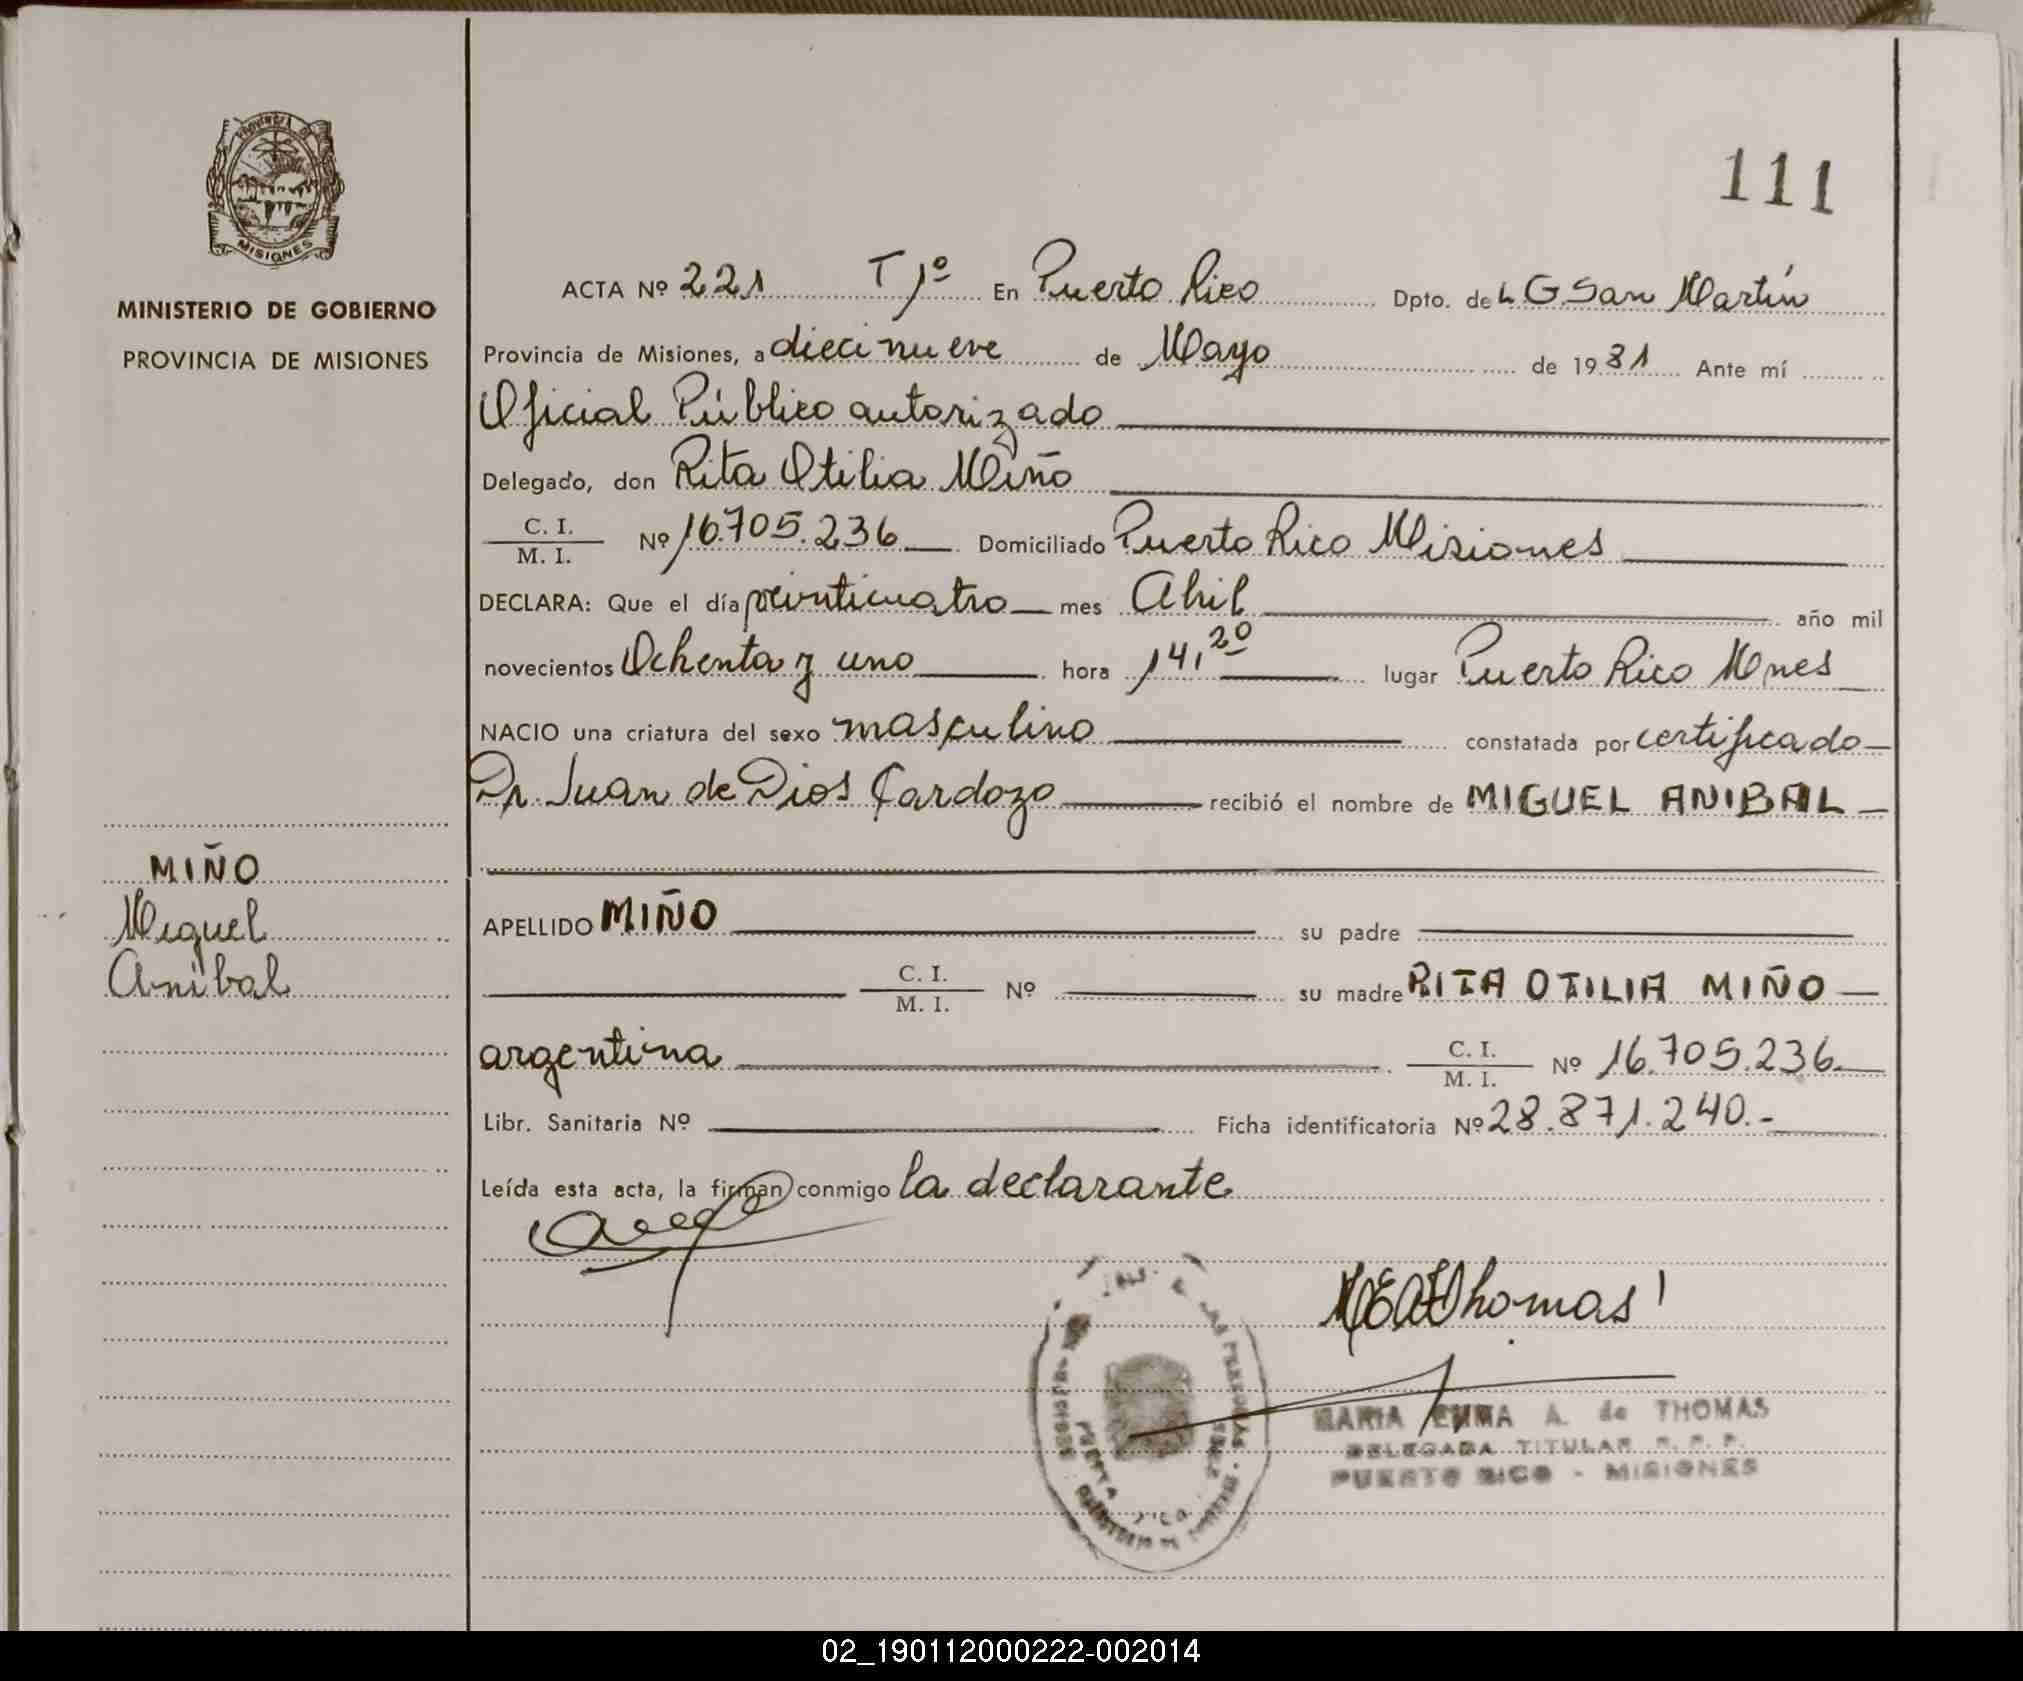 111
PROVINCIA DE
MISIONES
MINISTERIO DE GOBIERNO
PROVINCIA DE MISIONES
ACTA Nº 221 T 1º En Puerto Rico Dpto. de L G. San Martín
Provincia de Misiones, a diecinueve de Mayo de 1981 Ante mí
Oficial Público autorizado
Delegado, don Rita Otilia Miño
C. I. / M. I. Nº 16.705.236 Domiciliado Puerto Rico Misiones
DECLARA: Que el día veinticuatro mes Abril año mil
novecientos Ochenta y uno hora 14,20 lugar Puerto Rico Mnes
NACIO una criatura del sexo masculino constatada por certificado
Dr. Juan de Dios Cardozo recibió el nombre de MIGUEL ANIBAL
MIÑO
Miguel
Anibal
APELLIDO MIÑO su padre
C. I. / M. I. Nº su madre RITA OTILIA MIÑO
argentina C. I. / M. I. Nº 16.705.236
Libr. Sanitaria Nº Ficha identificatoria Nº 28.871.240.-
Leída esta acta, la firman conmigo la declarante
MEAThomas
MARIA EMMA A. de THOMAS
DELEGADA TITULAR R. P. P.
PUERTO RICO - MISIONES
02_190112000222-002014